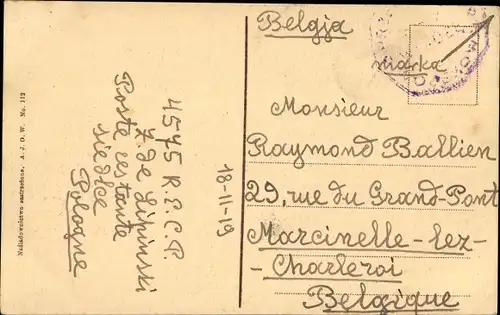 Belgja
marka
Monsieur
Raymond Ballien
29, rue du Grand-Pont
Marcinelle-lez-
-Charleroi
Belgique
18-11-19
4575 R.E.C.P.
Z. de Lipinski
Poste restante
Siedlce
Pologne
Nakładownictwo zastrzeżone. A. J. O. W. No. 112